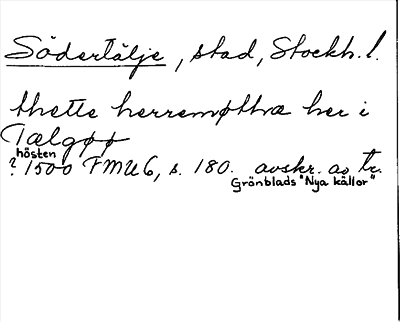 Södertälje, stad, Stockh. l.
thette herremøthæ her i
Tælgøø
hösten
? 1500 FMU 6, s. 180. avskr. av tr.
Grönblads "Nya källor"